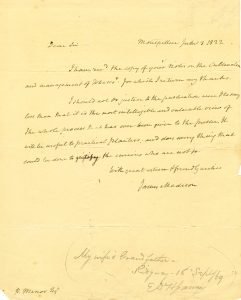 Dear Sir Montpellier July 1822
I have recd the copy of your Notes on the Cultivation
and management of Tobacco for which I return my thanks.
I should not do justice to the publication were I to say
less than that it is the most intelligible and valuable view of
the whole process it has ever been given to the public. It
will be useful to practical planters, and does every thing that
could be done to the curious who are not so.
With great esteem & friendly wishes
James Madison
My wife's Grandfather
18 Sept /69